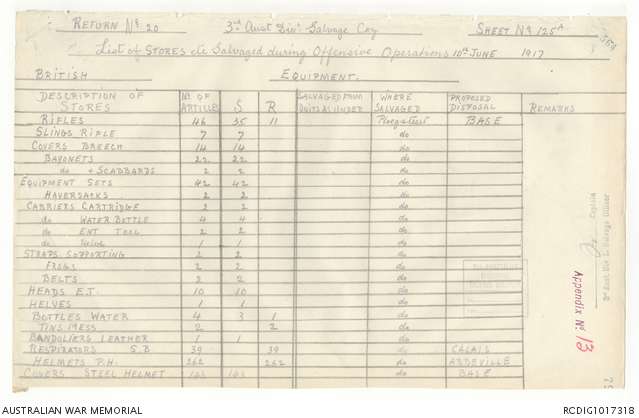 RETURN No. 20 3rd Aust Divl Salvage Coy SHEET No 125A
List of STORES etc Salvaged during Offensive Operations 10th JUNE 1917
BRITISH EQUIPMENT.
DESCRIPTION OF STORES No. OF ARTICLE S R SALVAGED FROM UNITS AS UNDER WHERE SALVAGED PROPOSED DISPOSAL REMARKS
RIFLES 46 35 11 Ploegsteert BASE
SLINGS RIFLE 7 7 do
COVERS BREECH 14 14 do
BAYONETS 22 22 do
do + SCABBARDS 2 2 do
EQUIPMENT SETS 42 42 do
HAVERSACKS 2 2 do
CARRIERS CARTRIDGE 2 2 do
do WATER BOTTLE 4 4 do
do ENT TOOL 2 2 do
do 1 1 do
STRAPS SUPPORTING 2 2 do
FROGS 2 2 do
BELTS 2 2 do
HEADS E.T. 10 10 do
HELVES 1 1 do
BOTTLES WATER 4 3 1 do
TINS MESS 2 2 do
BANDOLIERS LEATHER 1 1 do
RESPIRATORS S.B 39 39 do CALAIS
HELMETS P.H. 262 262 do ABBEVILLE
COVERS STEEL HELMET do BASE
Captain
3rd Aust. Div. Salvage Officer
Appendix No. 13
AUSTRALIAN WAR MEMORIAL RCDIG1017318